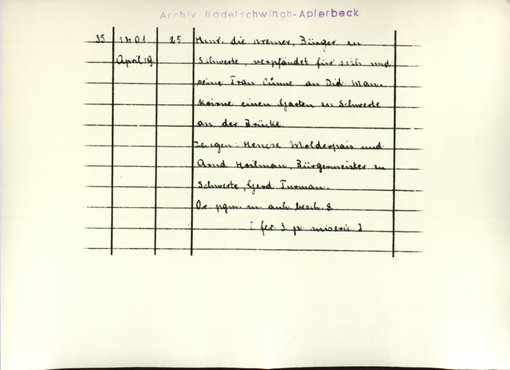 Archiv Bodelschwingh-Aplerbeck
35 1401 25 Henr. die Kremer, Bürger zu
April 19. Schwerte, verpfändet für sich und
seine Frau Cünne an Did. Man-
koirne einen Garten zu Schwerte
an der Brücke.
Zeugen: Henese Molderpais und
Arnd Hoilman, Bürgermeister zu
Schwerte, Gerd Turman.
Or. pgm. m. anh. besch. S
[ fer. 3 p. miseric. ]